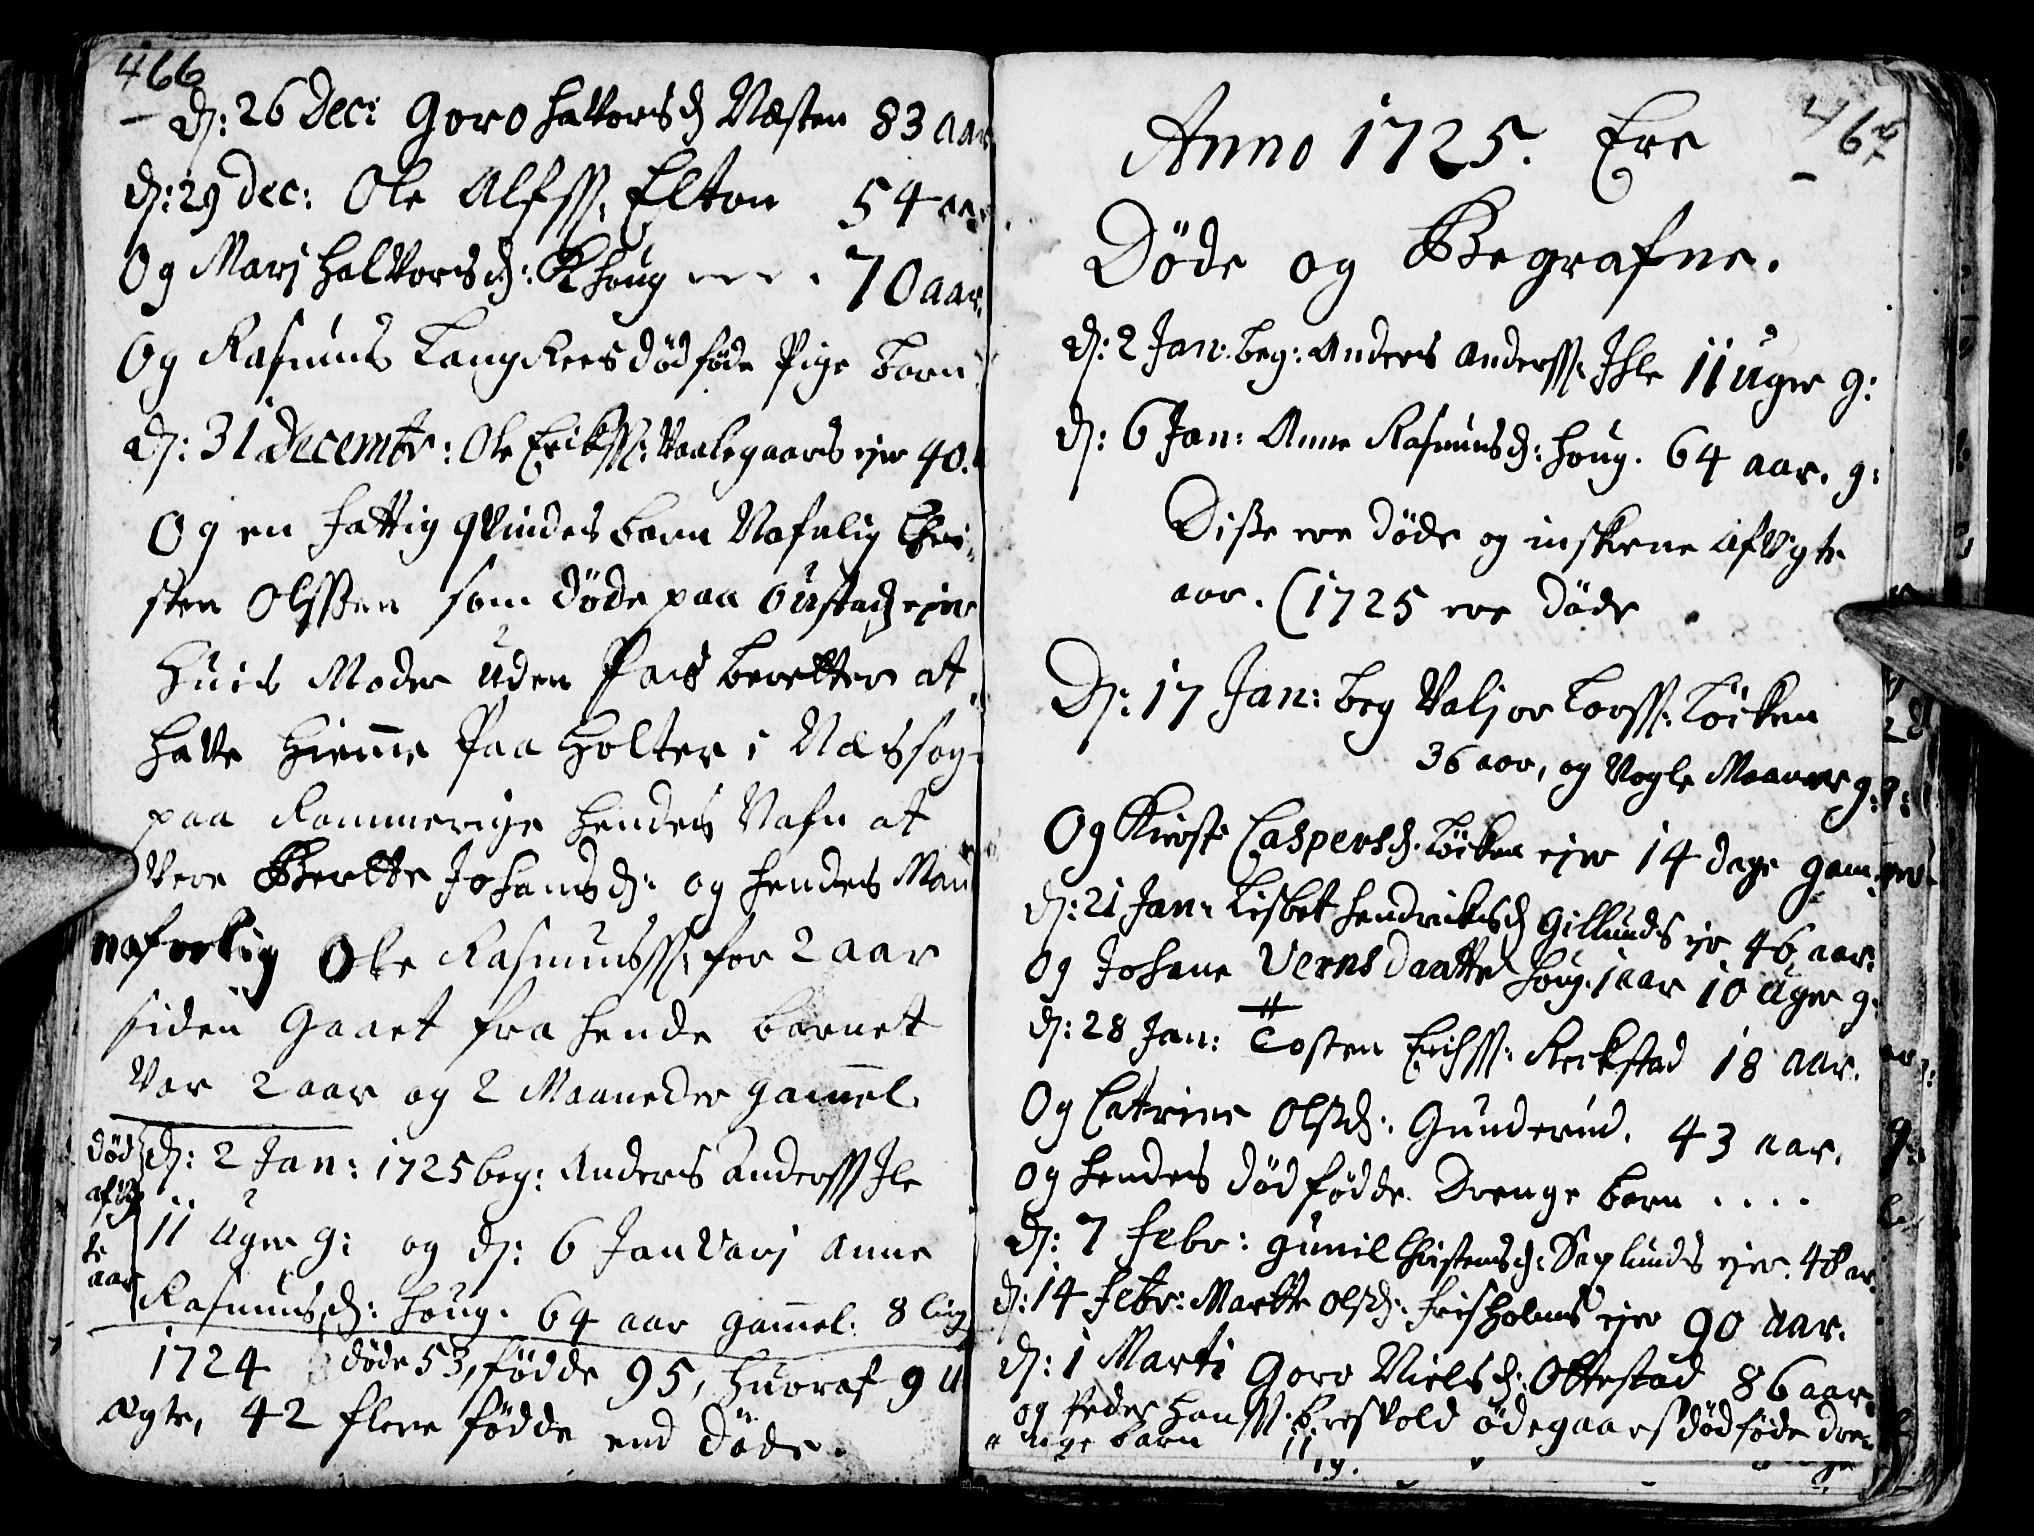 466
d: 26 Dec: Goro Halvorsd Næsten 83 aar
d: 29 Dec: Ole Alfss: Elton 54 aar
Og Marj Halvorsd: Khoug 70 aar.
Og Rasmus Langkees dødføde Pige barn
d: 31 Decembr: Ole Erikss: Vaalegaards ejer 40.
Og en fattig qvindes barn Nafnlig Chri-
sten Olssen som døde paa Gustad ejer
Huis Moder uden Pas beretter at
hafve hiemme paa Holter i Næs sog-
paa Rommerige hendes Nafn at
Vere Berthe Johansd: og hendes Man
nafnlig Ole Rasmuss: for 2 aar
siden Gaaet fra hende barnet
Var 2 aar og 2 Maaneder gam̄el.
død d: 2 Jan: 1725 beg: Anders Anderss Ile
afvig 11 uger g: og d: 6 Januarj Anne
te
aar Rasmusd: Houg. 64 aar gam̄el: 8 liig
1724 døde 53, fødde 95, huoraf 9 u
ægte, 42 flere fødde end døde.
465
Anno 1725. Ere
Døde og Begrafne.
d: 2 Jan: beg: Anders Anderss: Ihle 11 uger g:
d: 6 Jan: Anne Rasmusd: Houg. 64 aar. g:
Disse ere døde og inskrene afvigte
aar. (1725 ere døde
D: 17 Jan: beg Valjor Larss: Løiken
36 aar, og Nogle Maaner g:
Og Kirsti Caspersd. Løiken ejer 14 dage gam:
d: 21 Jan: Lisbet Hendriksd Gillunds ejr 46 aar:
Og Johane Vernsdaatter Houg. 1 aar 10 uger g.
d: 28 Jan: Tosten Erichss: Reekstad 18 aar.
Og Catrine Olsd: Gunderud. 43 aar.
Og hendes dødfødde Drenge barn ....
d: 7 Febr: Gunil Christensd: Seglunds ejer. 48 ar.
d: 14 Febr: Marthe Olsd: Frisholms ejer 90 aar.
d: 1 Marti Goro Nielsd: Ottestad 86 aar.
og Peder Hanss: Breskold ødegaars dødføde dre-
nge barn 11